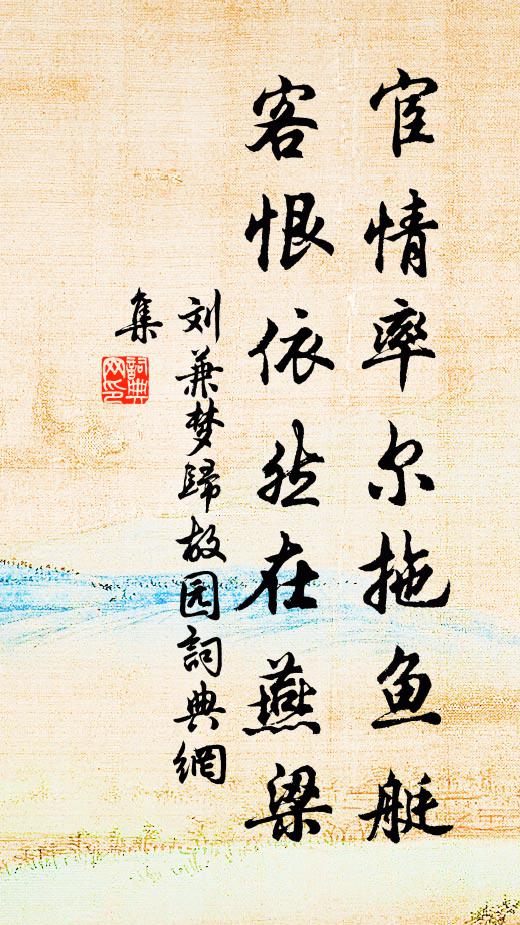 宦情率尔拖鱼艇
客恨依然在燕梁
刘兼梦歸故园詞典網
集
詞典網印